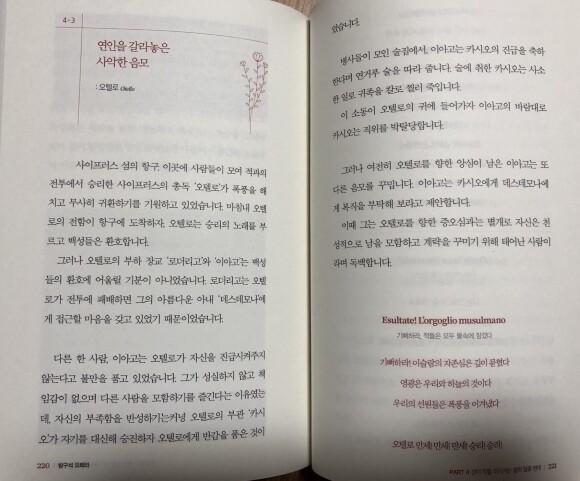 4-3
연인을 갈라놓은
사악한 음모
: 오텔로 Otello
사이프러스 섬의 항구. 이곳에 사람들이 모여 적과의
전투에서 승리한 사이프러스의 총독 '오텔로'가 폭풍을 헤
치고 무사히 귀환하기를 기원하고 있었습니다. 마침내 오텔
로의 전함이 항구에 도착하자, 오텔로는 승리의 노래를 부
르고 백성들은 환호합니다.
그러나 오텔로의 부하 장교 '로더리고'와 '이아고'는 백성
들의 환호에 어울릴 기분이 아니었습니다. 로더리고는 오텔
로가 전투에 패배하면 그의 아름다운 아내 '데스데모나'에
게 접근할 마음을 갖고 있었기 때문이었습니다.
다른 한 사람, 이아고는 오텔로가 자신을 진급시켜주지
않는다고 불만을 품고 있었습니다. 그가 성실하지 않고 책
임감이 없으며 다른 사람을 모함하기를 즐긴다는 이유였는
데, 자신의 부족함을 반성하기는커녕 오텔로의 부관 '카시
오'가 자기를 대신해 승진하자 오텔로에게 반감을 품은 것이
220 방구석 오페라
었습니다.
병사들이 모인 술집에서, 이아고는 카시오의 진급을 축하
한다며 연거푸 술을 따라 줍니다. 술에 취한 카시오는 사소
한 일로 귀족을 칼로 찔러 죽입니다.
이 소동이 오텔로의 귀에 들어가자 이아고의 바람대로
카시오는 직위를 박탈당합니다.
그러나 여전히 오텔로를 향한 앙심이 남은 이아고는 또
다른 음모를 꾸밉니다. 이아고는 카시오에게 데스데모나에
게 복직을 부탁해 보라고 제안합니다.
이때 그는 오텔로를 향한 증오심과는 별개로 자신은 천
성적으로 남을 모함하고 계략을 꾸미기 위해 태어난 사람이
라며 독백합니다.
Esultate! L'orgoglio musulmano
기뻐하라, 적들은 모두 물속에 잠겼다
기뻐하라! 이슬람의 자존심은 깊이 묻혔다
영광은 우리와 하늘의 것이다
우리의 선원들은 폭풍을 이겨냈다
오텔로 만세! 만세! 만세! 승리! 승리!
PART 4 221